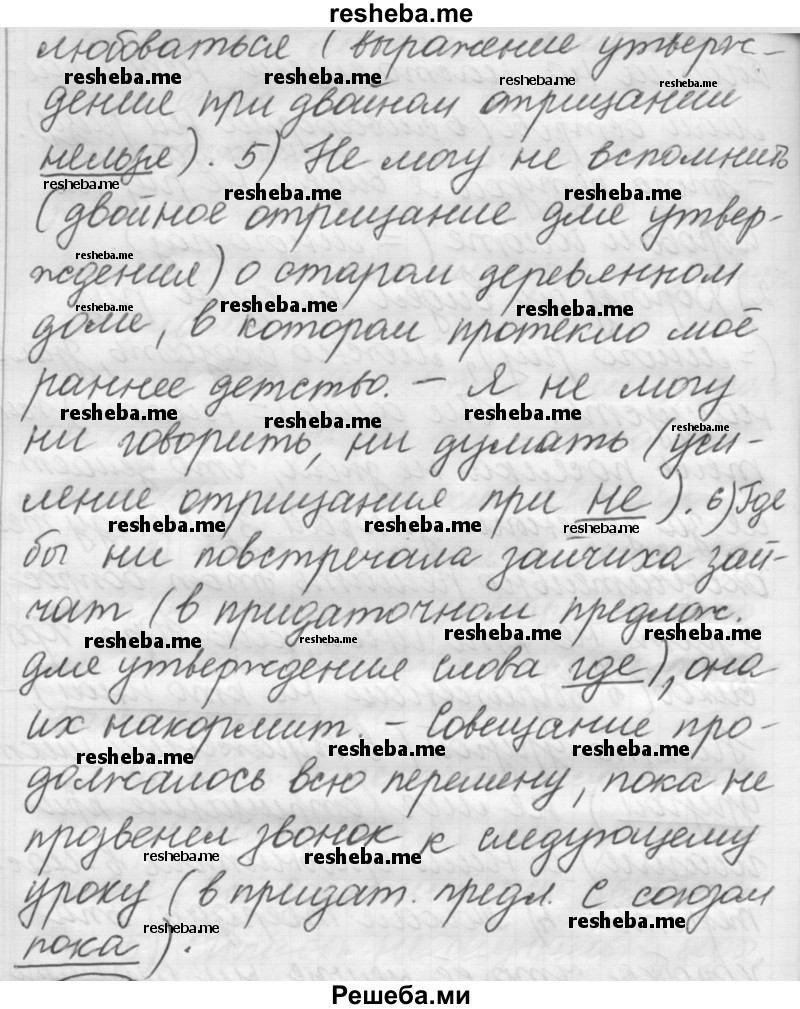 resheba.me
любоваться (выражение утверж-
resheba.me resheba.me resheba.me resheba.me
дения при двойном отрицании
нельзя). 5) Не могу не вспомнить
resheba.me resheba.me resheba.me
(двойное отрицание для утвер-
resheba.me
ждения) о старом деревянном
resheba.me resheba.me resheba.me
доме, в котором протекло моё
раннее детство. – Я не могу
resheba.me resheba.me resheba.me resheba.me
ни говорить, ни думать (уси-
ление отрицания при не). 6) Где
resheba.me resheba.me resheba.me
бы ни повстречала зайчиха зай-
чат (в придаточном предлож.
resheba.me resheba.me resheba.me resheba.me
для утверждения слова где), она
их накормит. – Совещание про-
resheba.me resheba.me resheba.me
должалось всю перемену, пока не
прозвенел звонок к следующему
resheba.me resheba.me
уроку (в придат. предл. с союзом
resheba.me resheba.me
пока).
Решеба.ми